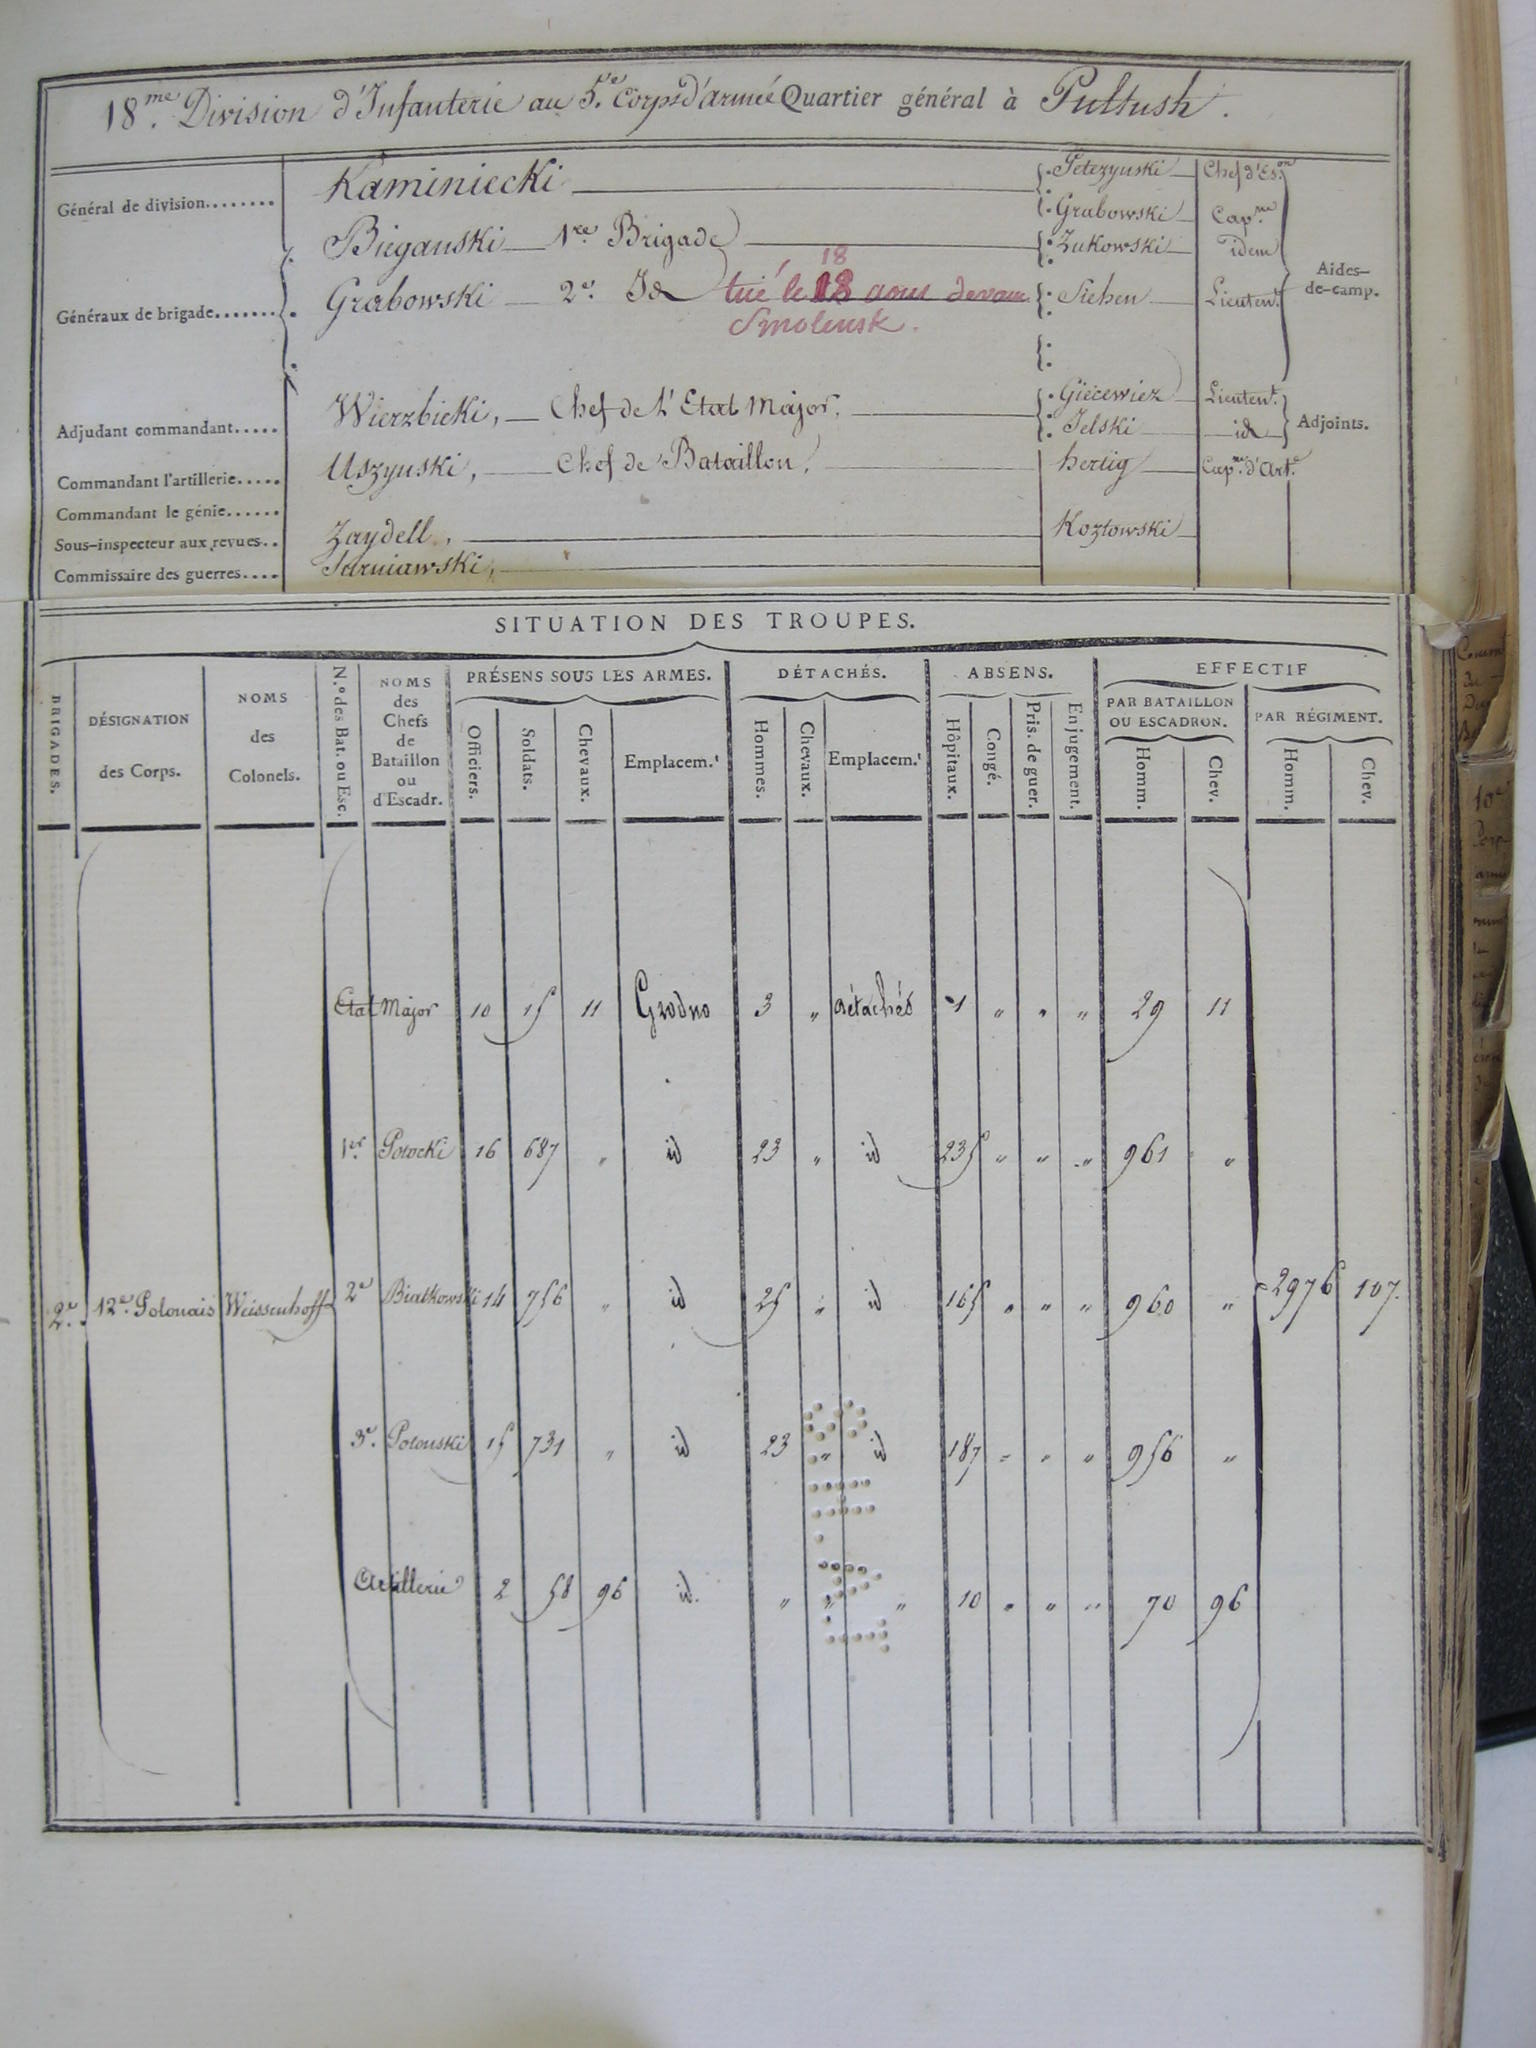 18.me Division d'Infanterie au 5.e Corps d'armée Quartier général à Pultush.
Général de division........ Kaminiecki Petezynski Chef d'Es.on
Grabowski Cap.ne
Bieganski 1.re Brigade Zukowski idem
Généraux de brigade....... Grabowski 2.e Id tué le 18 18 aout devant Siehen Lieuten.t Aides-de-camp.
Smolensk.
Adjudant commandant..... Wierzbicki, Chef de l'Etat Major. Giecewiez Lieuten.t
Jelski id Adjoints.
Commandant l'artillerie..... Uszynski, Chef de Bataillon, hertig Cap.ne d'Art.e
Commandant le génie......
Sous-inspecteur aux revues... Zaydell, Kozlowski
Commissaire des guerres.... Tarniawski,
SITUATION DES TROUPES.
BRIGADES. DÉSIGNATION des Corps. NOMS des Colonels. N.os des Bat. ou Esc. NOMS des Chefs de Bataillon ou d'Escadr.
PRÉSENS SOUS LES ARMES. Officiers. Soldats. Chevaux. Emplacem.t
DÉTACHÉS. Hommes. Chevaux. Emplacem.t
ABSENS. Hôpitaux. Congé. Pris. de guer. En jugement.
EFFECTIF PAR BATAILLON OU ESCADRON. Homm. Chev. PAR RÉGIMENT. Homm. Chev.
Etat Major 10 15 11 Grodno 3 " détachés 1 " " " 29 11
1.er Potocki 16 687 " id 23 " id 235 " " " 961 "
2.e 12.e Polonais Weissenhoff 2.e Bialkowski 14 756 " id 25 " id 165 " " " 960 " 2976 107.
3.e Polonski 15 731 " id 23 " id 187 " " " 956 "
Artillerie 2 58 96 id. " " " 10 " " " 70 96